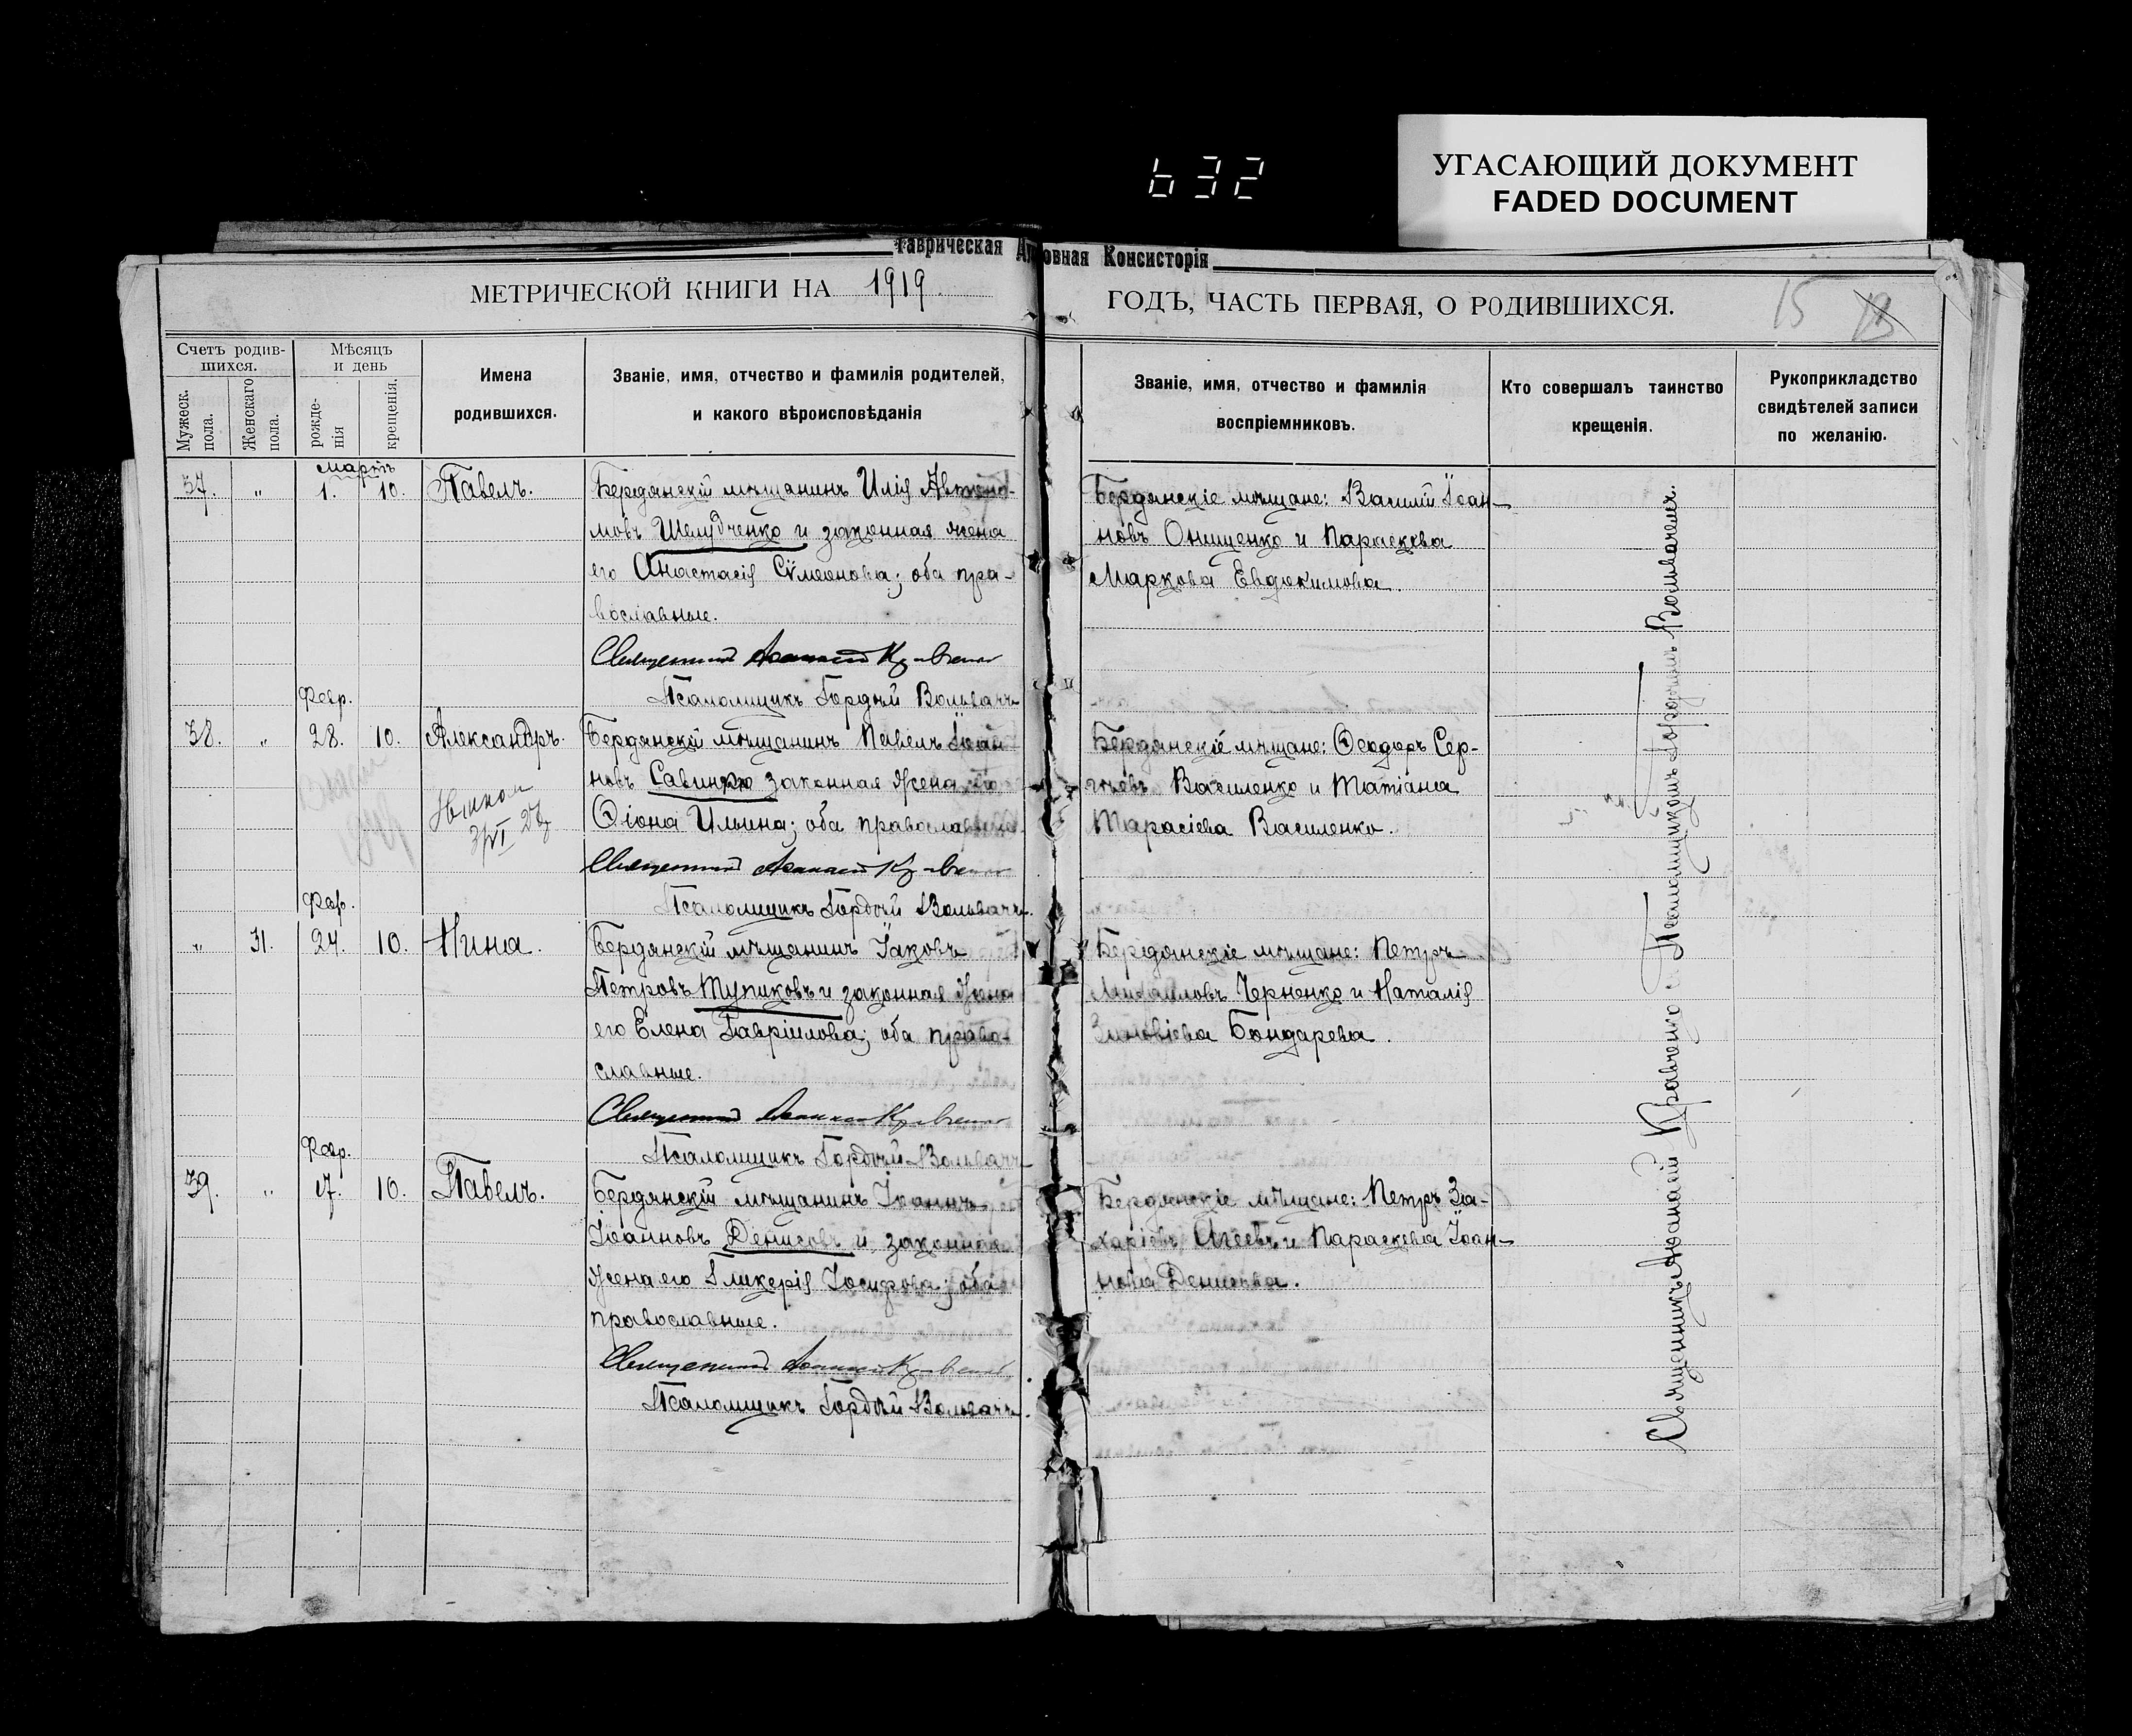 632
УГАСАЮЩИЙ ДОКУМЕНТ
FADED DOCUMENT
Таврическая Духовная Консисторія
МЕТРИЧЕСКОЙ КНИГИ НА 1919
ГОДЪ, ЧАСТЬ ПЕРВАЯ, О РОДИВШИХСЯ.
15 13
Счетъ родив-
шихся.
Мужеск.
пола.
Женскаго
пола.
Мѣсяцъ
и день
рожде-
нія
крещенія.
Имена
родившихся.
Званіе, имя, отчество и фамилія родителей,
и какого вѣроисповѣданія
Званіе, имя, отчество и фамилія
воспріемниковъ.
Кто совершалъ таинство
крещенія.
Рукоприкладство
свидѣтелей записи
по желанію.
Мартъ
37. " 1. 10. Павелъ.
Бердянскій мѣщанинъ Илія Автоно-
мовъ Шелудченко и законная жена
его Анастасія Сѵмеонова; оба пра-
вославные.
Священникъ Аѳанасій Кравченко
Псаломщикъ Гордѣй Вольвачъ
Бердянскіе мѣщане: Василій Іоан-
новъ Онищенко и Параскева
Маркова Евдокимова.
Февр.
38. " 28. 10. Александръ.
Бердянскій мѣщанинъ Павелъ Іоан
новъ Савинъ законная жена его
Ѳіона Ильина; оба православные.
Священникъ Аѳанасій Кравченко
Псаломщикъ Гордѣй Вольвачъ.
Бердянскіе мѣщане: Ѳеодоръ Сер-
гѣевъ Василенко и Татіана
Тарасіева Василенко.
Фев.
" 31. 24. 10. Нина.
Бердянскій мѣщанинъ Іаковъ
Петровъ Тупиковъ и законная жена
его Елена Гавріилова; оба право-
славные.
Священникъ Аѳанасій Кравченко
Псаломщикъ Гордѣй Вольвачъ
Бердянскіе мѣщане: Петръ
Михаиловъ Черненко и Наталія
Зиновіева Бондарева.
Февр.
39. " 17. 10. Павелъ.
Бердянскій мѣщанинъ Іоаннъ
Іоанновъ Денисовъ и законная
жена его Гликерія Іосифова; оба
православные.
Священникъ Аѳанасій Кравченко
Псаломщикъ Гордѣй Вольвачъ.
Бердянскіе мѣщане: Петръ За-
харіевъ Агеевъ и Параскева Іоан-
нова Денисова.
Священникъ Аѳанасій Кравченко с Псаломщикомъ Гордѣемъ Вольвачемъ.